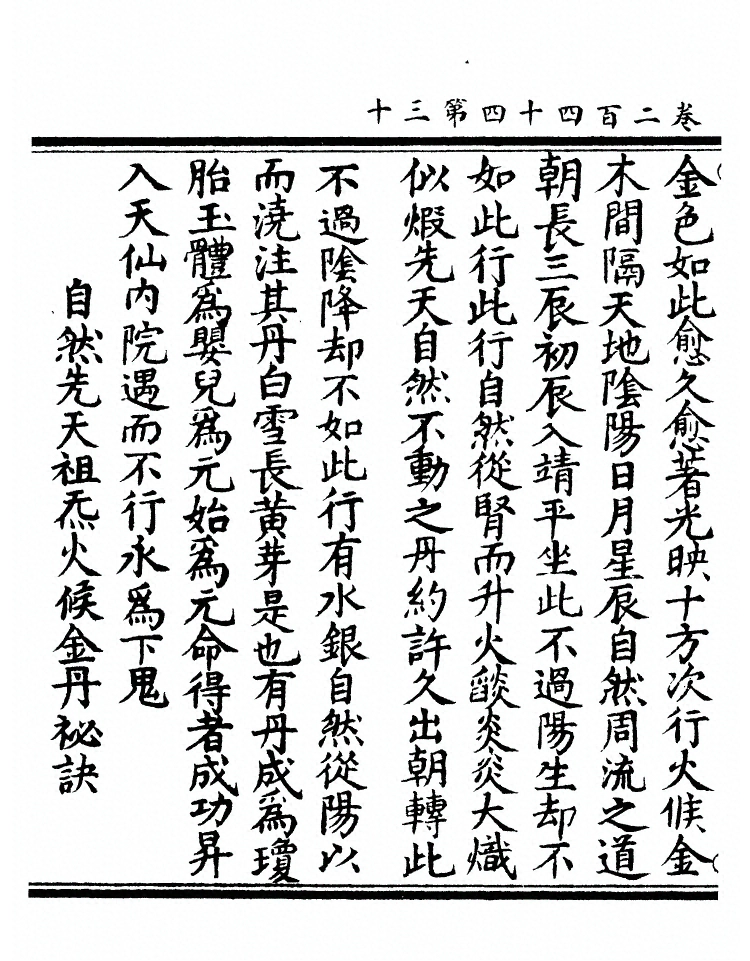 卷二百四十四第三十
金色如此愈久愈著光映十方次行火候金
木間隔天地陰陽日月星辰自然周流之道
朝長三辰初辰入靖平坐此不過陽生却不
如此行此行自然從腎而升火燄炎炎大熾
似煆先天自然不動之丹約許久出朝轉此
不過陰降却不如此行有水銀自然從陽以
而澆注其丹白雪長黃芽是也有丹成爲瓊
胎玉體爲嬰兒爲元始爲元命得者成功昇
入天仙內院遇而不行永爲下鬼
自然先天祖炁火候金丹祕訣